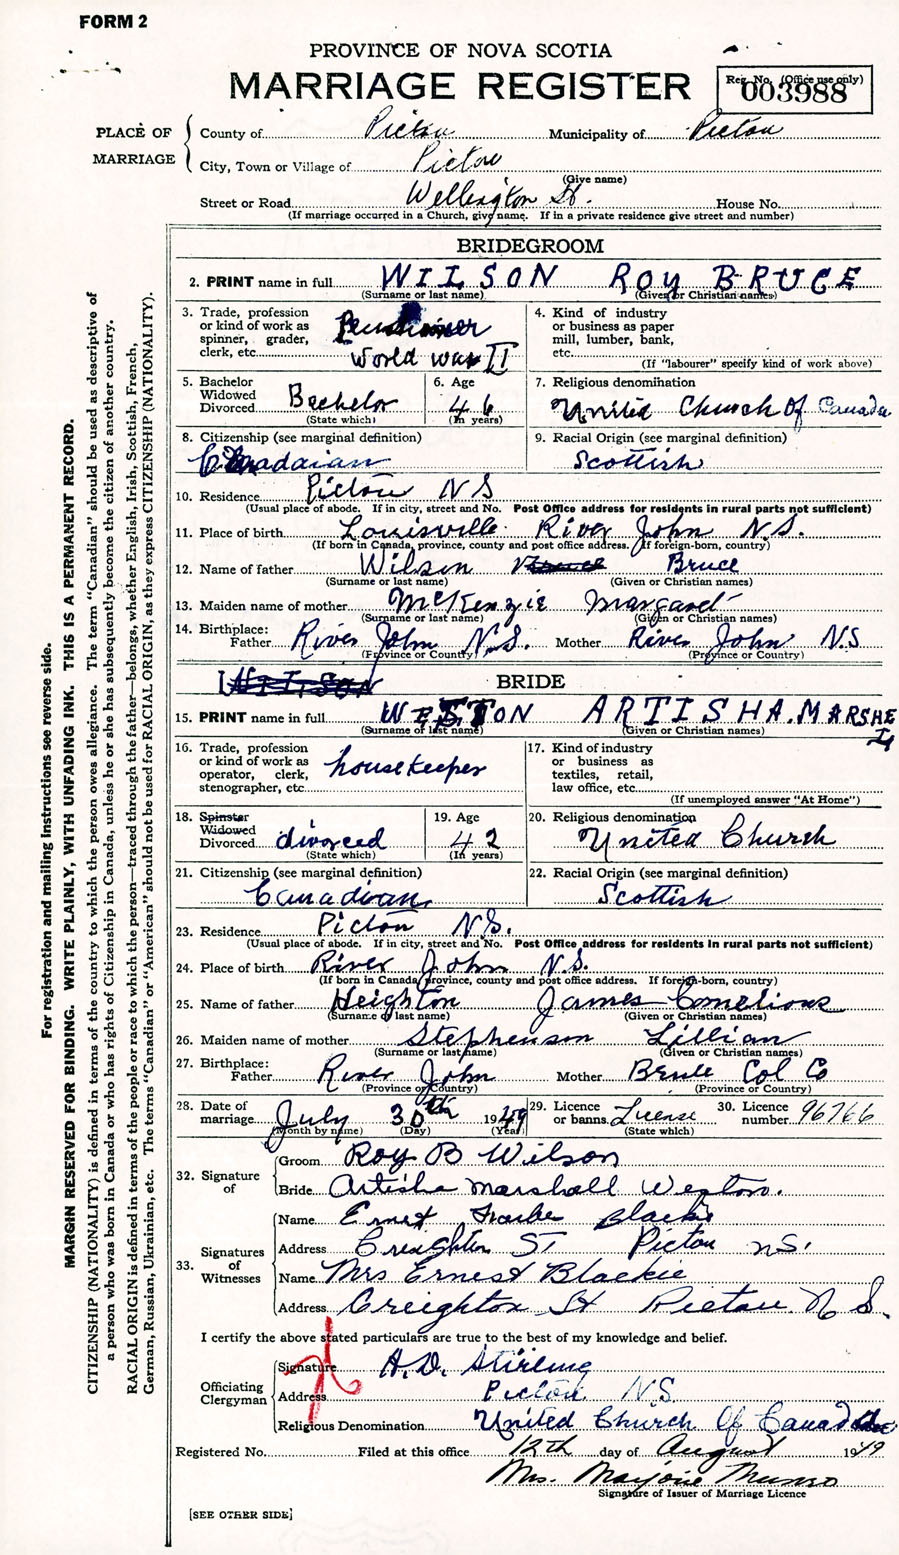 FORM 2
PROVINCE OF NOVA SCOTIA
MARRIAGE REGISTER
Reg. No. (Office use only)
003988
PLACE OF MARRIAGE
County of Pictou Municipality of Pictou
City, Town or Village of Pictou
(Give name)
Street or Road Wellington St. House No.
(If marriage occurred in a Church, give name. If in a private residence give street and number)
BRIDEGROOM
2. PRINT name in full WILSON ROY BRUCE
(Surname or last name) (Given or Christian names)
3. Trade, profession or kind of work as spinner, grader, clerk, etc. Pensioner World War II
4. Kind of industry or business as paper mill, lumber, bank, etc.
(If "labourer" specify kind of work above)
5. Bachelor Widowed Divorced Bachelor
(State which)
6. Age 46
(In years)
7. Religious denomination
United Church Of Canada
8. Citizenship (see marginal definition)
Canadaian
9. Racial Origin (see marginal definition)
Scottish
10. Residence Pictou N S
(Usual place of abode. If in city, street and No. Post Office address for residents in rural parts not sufficient)
11. Place of birth Louisville River John N.S.
(If born in Canada, province, county and post office address. If foreign-born, country)
12. Name of father Wilson Bruce Bruce
(Surname or last name) (Given or Christian names)
13. Maiden name of mother McKenzie Margaret
(Surname or last name) (Given or Christian names)
14. Birthplace: Father River John N.S. Mother River John N.S
(Province or County) (Province or Country)
WILSON
BRIDE
15. PRINT name in full WESTON ARTISHA. MARSHELL
(Surname or last name) (Given or Christian names)
16. Trade, profession or kind of work as operator, clerk, stenographer, etc. housekeeper
17. Kind of industry or business as textiles, retail, law office, etc.
(If unemployed answer "At Home")
18. Spinster Widowed Divorced divorced
(State which)
19. Age 42
(In years)
20. Religious denomination
United Church
21. Citizenship (see marginal definition)
Canadian
22. Racial Origin (see marginal definition)
Scottish
23. Residence Pictou N.S.
(Usual place of abode. If in city, street and No. Post Office address for residents in rural parts not sufficient)
24. Place of birth River John N.S.
(If born in Canada, province, county and post office address. If foreign-born, country)
25. Name of father Heighton James Cornelious
(Surname or last name) (Given or Christian names)
26. Maiden name of mother Stephenson Lillian
(Surname or last name) (Given or Christian names)
27. Birthplace: Father River John Mother Brule Col Co
(Province or Country) (Province or Country)
28. Date of marriage July 30th 1949
(Month by name) (Day) (Year)
29. Licence or banns License
(State which)
30. Licence number 96766
32. Signature of
Groom Roy B Wilson
Bride Artisha Marshall Weston.
33. Signatures of Witnesses
Name Ernest Blackie
Address Creighton St Pictou N.S.
Name Mrs Ernest Blackie
Address Creighton St Pictou N S.
I certify the above stated particulars are true to the best of my knowledge and belief.
Officiating Clergyman
Signature A. D. Stirling
Address Pictou NS
Religious Denomination United Church Of Canada
Registered No. Filed at this office 12th day of August 1949
Mrs. Marjorie Munro
Signature of Issuer of Marriage Licence
[SEE OTHER SIDE]
For registration and mailing instructions see reverse side.
MARGIN RESERVED FOR BINDING. WRITE PLAINLY, WITH UNFADING INK. THIS IS A PERMANENT RECORD.
CITIZENSHIP (NATIONALITY) is defined in terms of the country to which the person owes allegiance. The term "Canadian" should be used as descriptive of
a person who was born in Canada or who has rights of Citizenship in Canada, unless he or she has subsequently become the citizen of another country.
RACIAL ORIGIN is defined in terms of the people or race to which the person—traced through the father—belongs, whether English, Irish, Scottish, French,
German, Russian, Ukrainian, etc. The terms "Canadian" or "American" should not be used for RACIAL ORIGIN, as they express CITIZENSHIP (NATIONALITY).